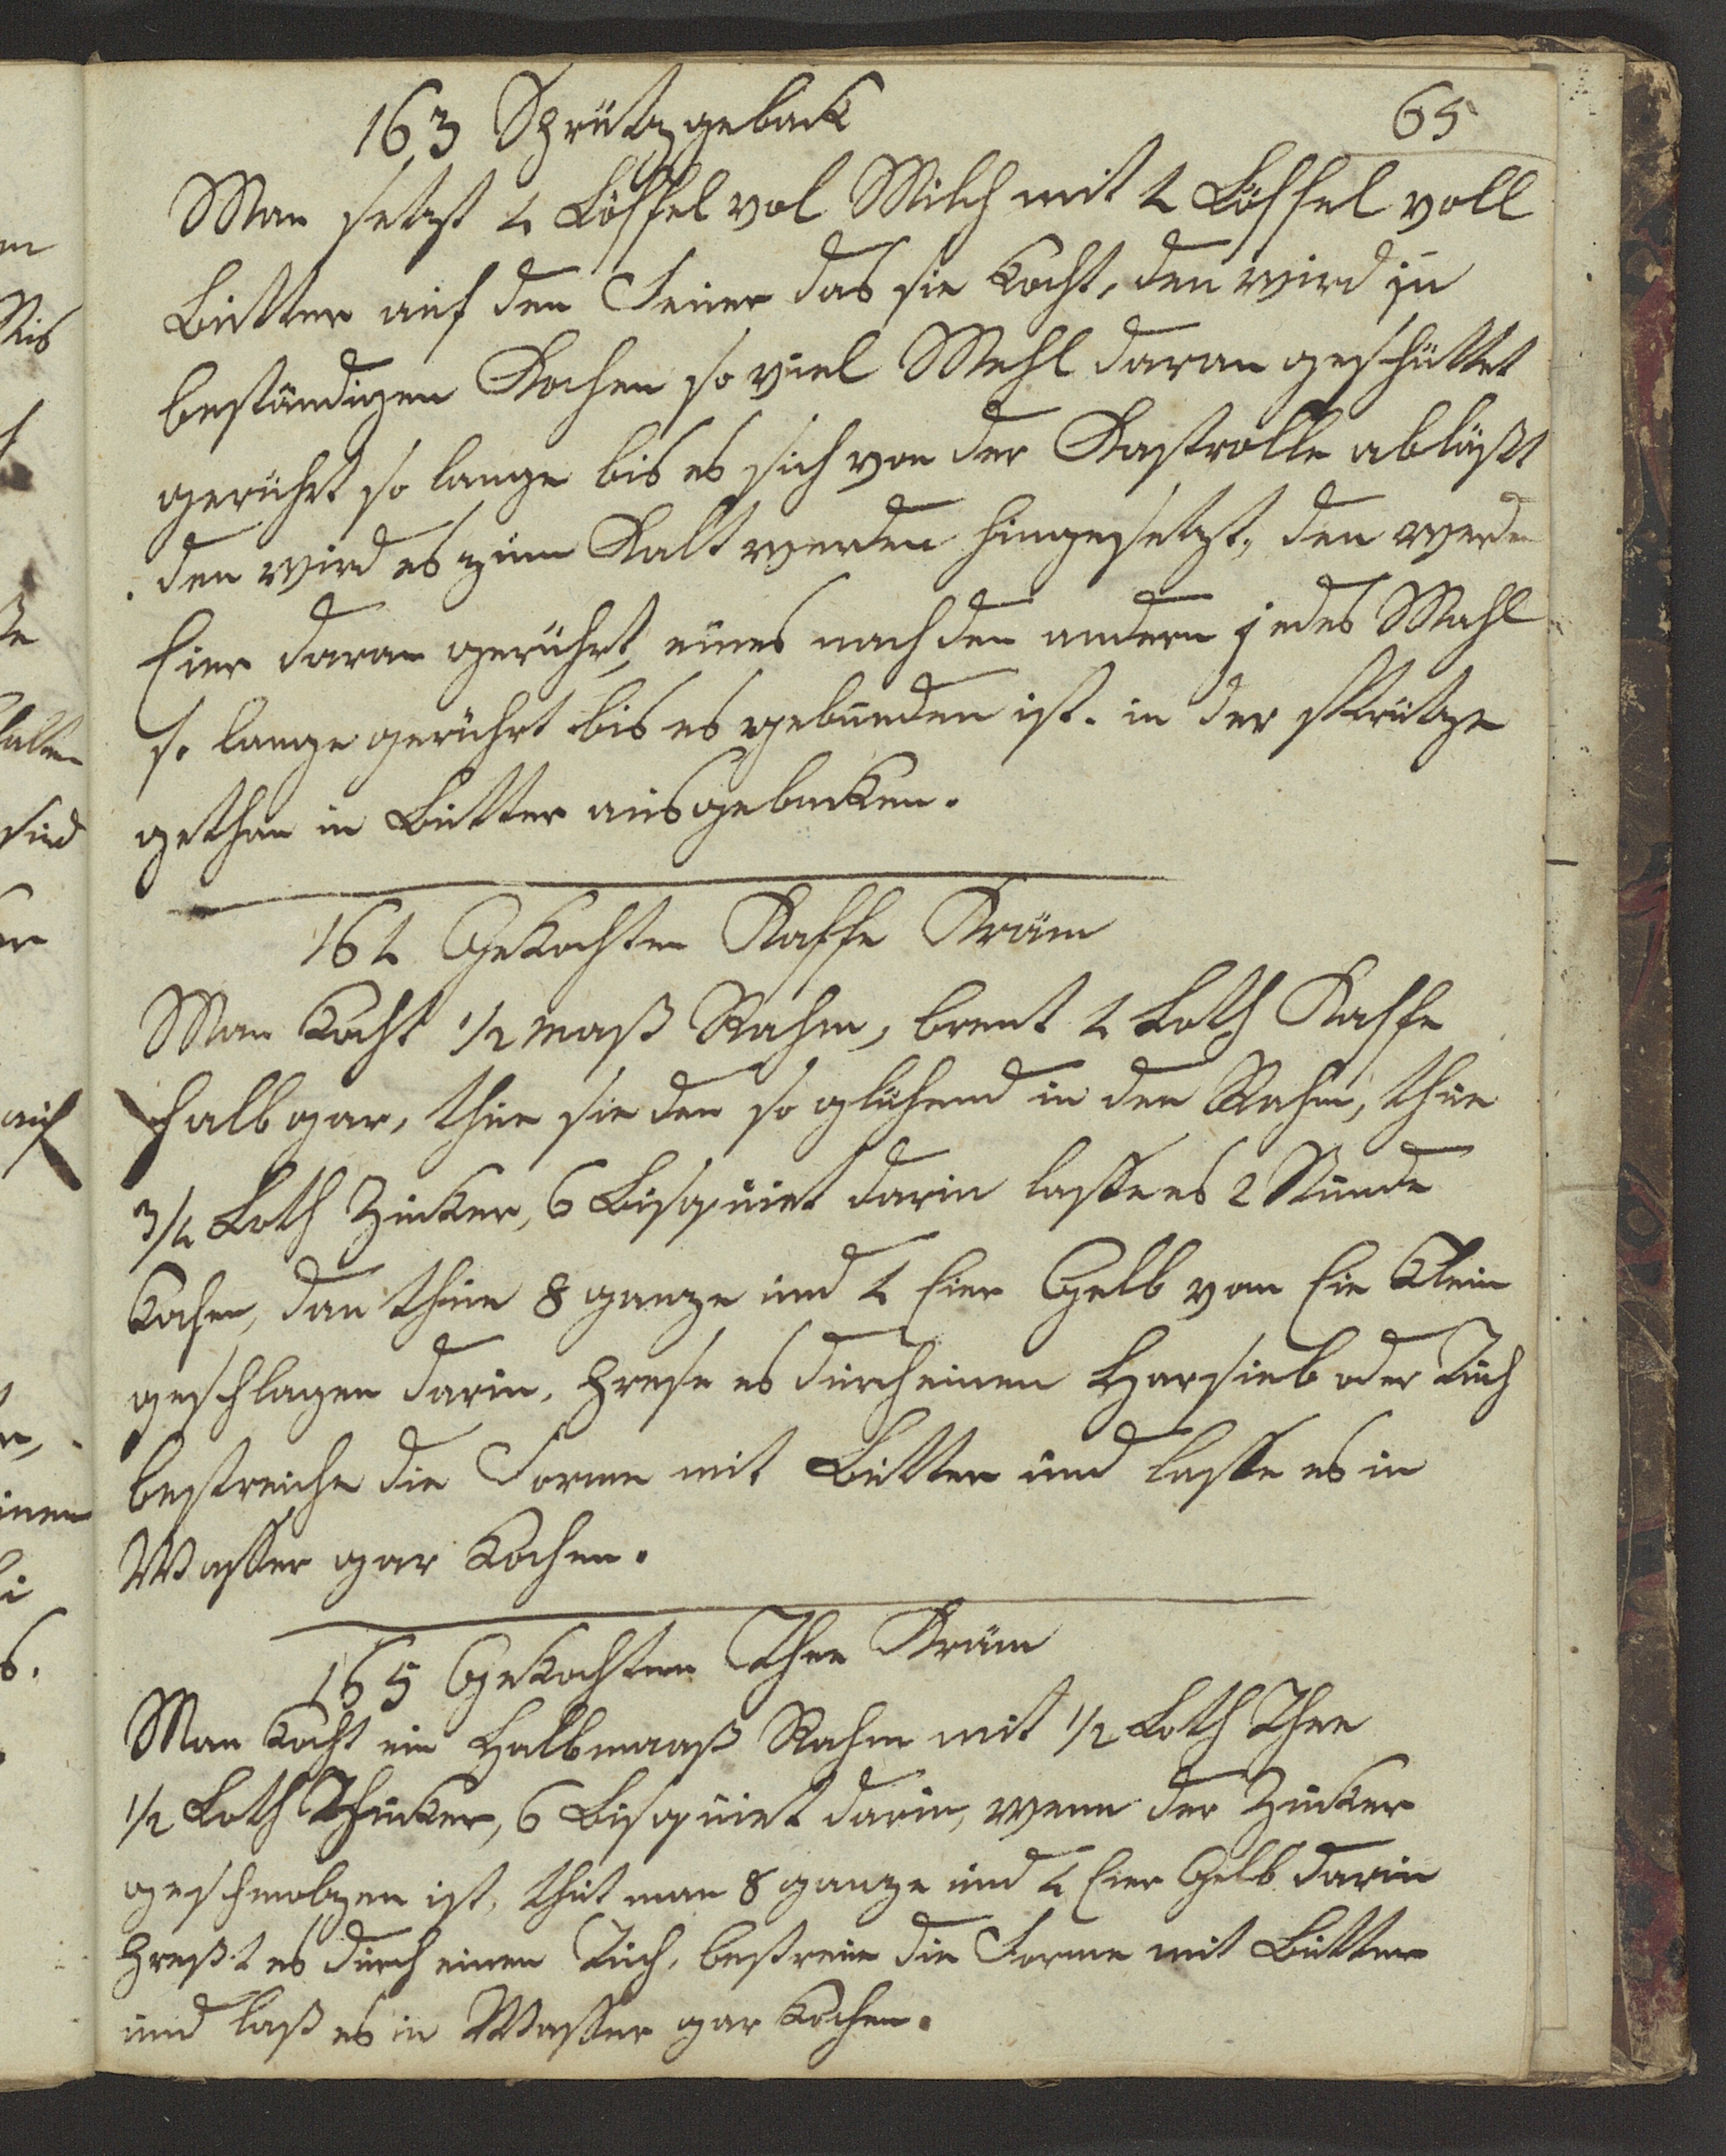 65
163 Sprützgeback
Man setzt 4 Löffel vol Milch mit 4 Löffel voll
Butter auf den Feuer das sie kocht, den wird zu
beständigen Kochen so viel Mehl daran geschüttet
gerührt so lange bis es sich von der Kastrolle abläßt
den wird es zum Kalt werden hingesetzt, den werden
Eier daran gerührt, eines nach den andern jedes Mahl
so lange gerührt bis es gebunden ist. in der Sprütze
gethan in Butter ausgebacken.
164 Gekochten Kaffe Kräm
Man kocht 1/2 maß Rahm, brent 4 Loth Kaffe
halb gar, thue sie den so glühend in den Rahm, thue
3/4 Loth Zucker, 6 Bisquiet darin lasse es 2 Stunde
kochen, dan thue 8 ganze und 4 Eier Gelb vom Eie klein
geschlagen darin, prese es durch einen Harsieb oder Tuch
bestreiche die Forme mit Butter und lasse es in
Wasser gar kochen.
165 Gekochten Thee Kräm
Man kocht ein Halbmaaß Rahm mit 1/2 Loth Thee
1/2 Loth Zucker, 6 Bisquiet darin, wenn der Zucker
geschmolzen ist, thut man 8 ganze und 4 Eier Gelb darin
preßt es durch einen Tuch, bestreie die Forme mit Butter
und laß es in Wasser gar kochen.